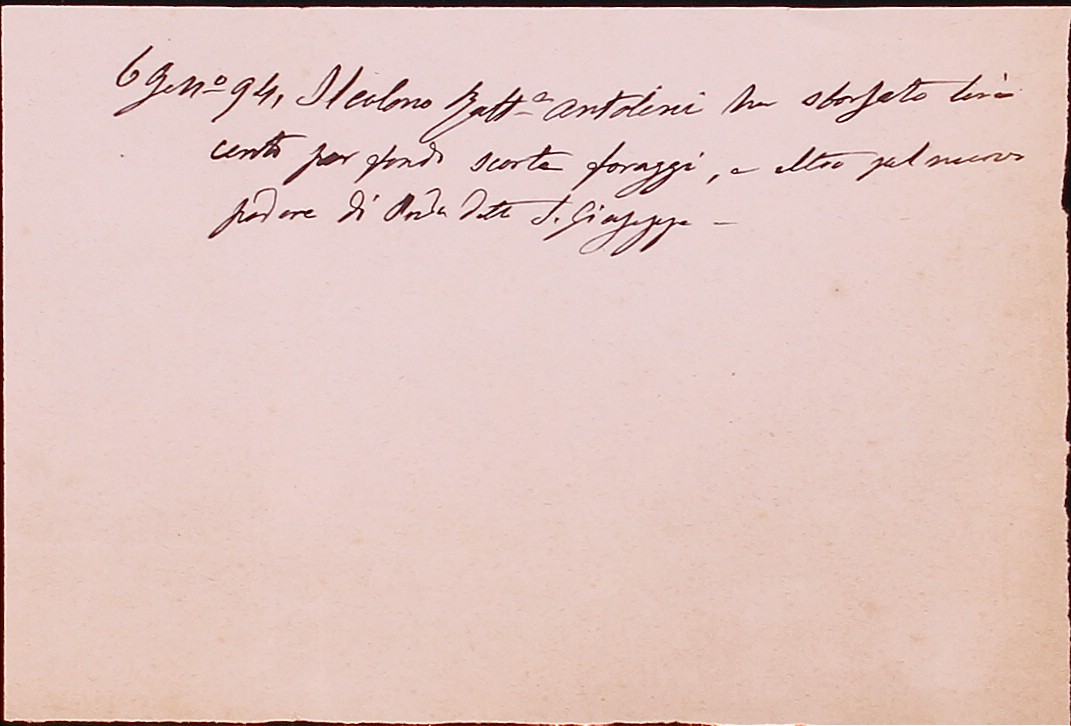 6 Genº 94, Il colono Battª Antolini ha sborsato lire
cento per fondo scorta foraggi, e altro pel nuovo
podere di detto S. Giuseppe —